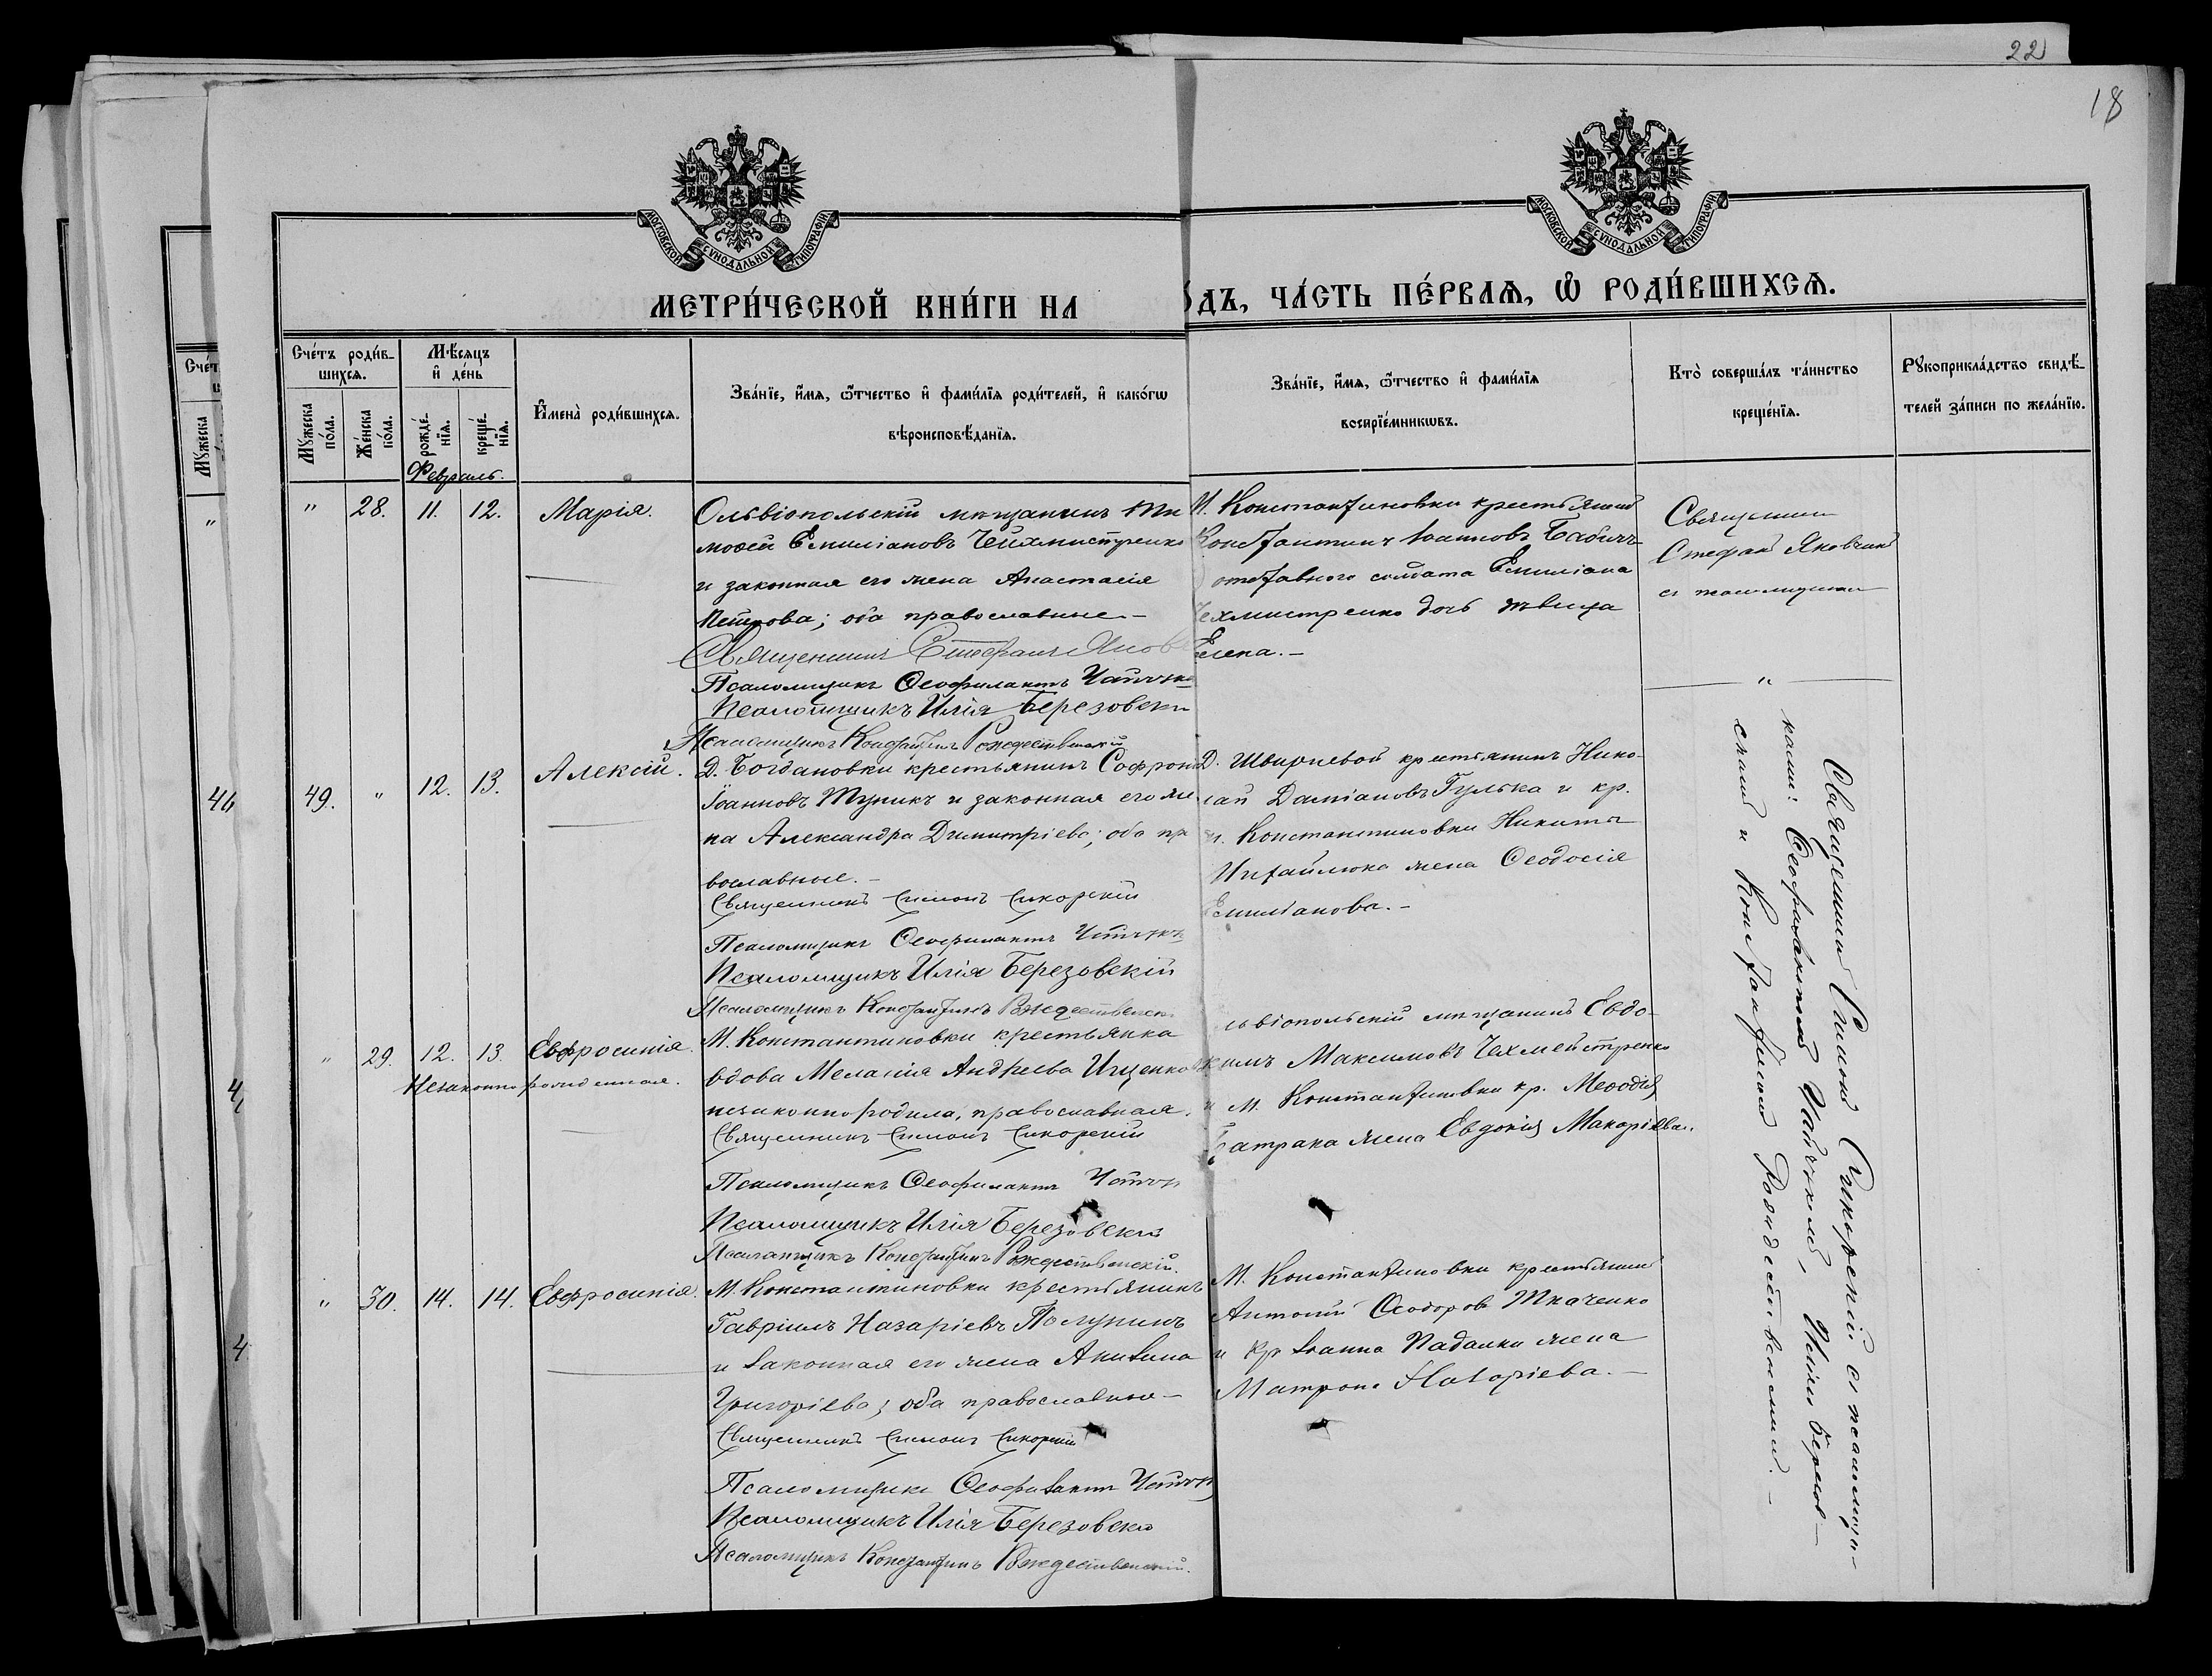 22
18
МОСКОВСКОЙ СѴНОДАЛЬНОЙ ТИПОГРАФІИ
МОСКОВСКОЙ СѴНОДАЛЬНОЙ ТИПОГРАФІИ
МЕТРИ́ЧЕСКОЙ КНИ́ГИ НА
О́ДЪ, ЧА́СТЬ ПЕ́РВАѦ, Ѡ РОДИ́ВШИХСѦ.
Сче́тъ роди́в-
шихсѧ.
Мѣ́сѧцъ
и҆ де́нь
Мꙋ́жеска по́ла.
Же́нска по́ла.
рожде́-нїѧ.
креще́-нїѧ.
И҆мена̀ роди́вшихсѧ.
Зва́нїе, и҆́мѧ, ѻ҆́тчество и҆ фами́лїѧ роди́телей, и҆ како́гѡ
вѣроисповѣ́данїѧ.
Зва́нїе, и҆́мѧ, ѻ҆́тчество и҆ фами́лїѧ
воспрїе́мникѡвъ.
Кто̀ соверша́лъ та́инство
креще́нїѧ.
Рꙋкоприкла́дство свидѣ́-
телей за́писи по жела́нїю.
Сче́т
Мꙋ́жеска
Февраль.
" 28. 11. 12. Марія.
Ольвіопольскій мѣщанинъ Ти
моѳей Емиліановъ Чейхмистренко
и законная его жена Анастасія
Петрова; оба православные –
Священникъ Стефанъ Яков
Псаломщикъ Ѳеофилактъ
Псаломщикъ Илія Березовскі
Псаломщикъ Константинъ Рождественскій
М. Константиновки крестьянинъ
Константинъ Іоанновъ Бабичъ
отставного солдата Емиліана
Чехмистренко дочь дѣвица
Елена. –
Священник
Стефанъ
съ псаломщиками
"
46
49. " 12. 13. Алексій.
Д. Богдановки крестьянинъ Софроні
Іоанновъ Тупикъ и законная его же
на Александра Димитріева; оба пр
вославные. –
Священникъ Симонъ Сикорскій
Псаломщикъ Ѳеофилактъ
Псаломщикъ Илія Березовскій
Псаломщикъ Константинъ Рождественск
Д. Швыревой крестьянинъ Нико-
лай Даміановъ Гулька и кр.
м. Константиновки Никиты
Михайлюка жена Ѳеодосія
Емиліанова. –
" 29. 12. 13. Евфросинія.
Незаконнорожденная.
М. Константиновки крестьянка
вдова Меланія Андреева Ищенко
незаконно родила, православная.
Священникъ Симонъ Сикорскій
Псаломщикъ Ѳеофилактъ
Псаломщикъ Илія Березовскій
Псаломщикъ Константинъ Рождественскій.
львіопольскій мѣщанинъ Евдо-
кимъ Максимовъ Чехмейстренко
и м. Константиновки кр. Меѳодія
Батрака жена Евдокія Макаріева.
4
" 30. 14. 14. Евфросинія.
М. Константиновки крестьянинъ
Гавріилъ Назаріевъ Полунинъ
и законная его жена Акилина
Григоріева; оба православные –
Священникъ Симонъ Сикорскій
Псаломщикъ Ѳеофилактъ
Псаломщикъ Илія Березовскі
Псаломщикъ Константинъ Рождественскій.
М. Константиновки крестьянинъ
Антоній Ѳеодоровъ Ткаченко
и кр. Іоанна Падалки жена
Матрона Назаріева. –
4
Священникъ Симонъ Сикорскій съ псаломщи-
ками: Ѳеофилактомъ Иліею Березов-
скимъ и Константиномъ Рождественскимъ. –